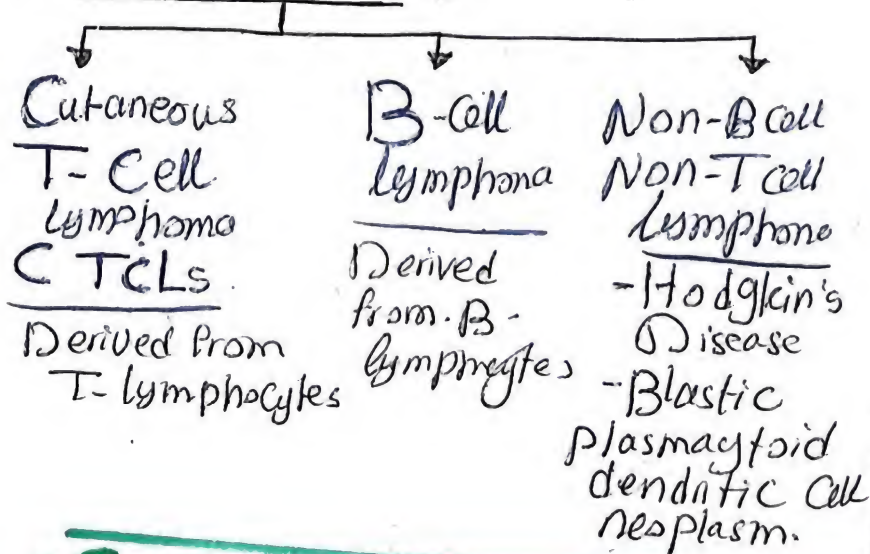 Cutaneous
T-Cell
lymphoma
CTCLs
Derived from
T-lymphocytes
B-Cell
lymphoma
Derived
from B-
lymphocytes
Non-B cell
Non-T cell
lymphoma
-Hodgkin's
Disease
-Blastic
plasmacytoid
dendritic cell
neoplasm.